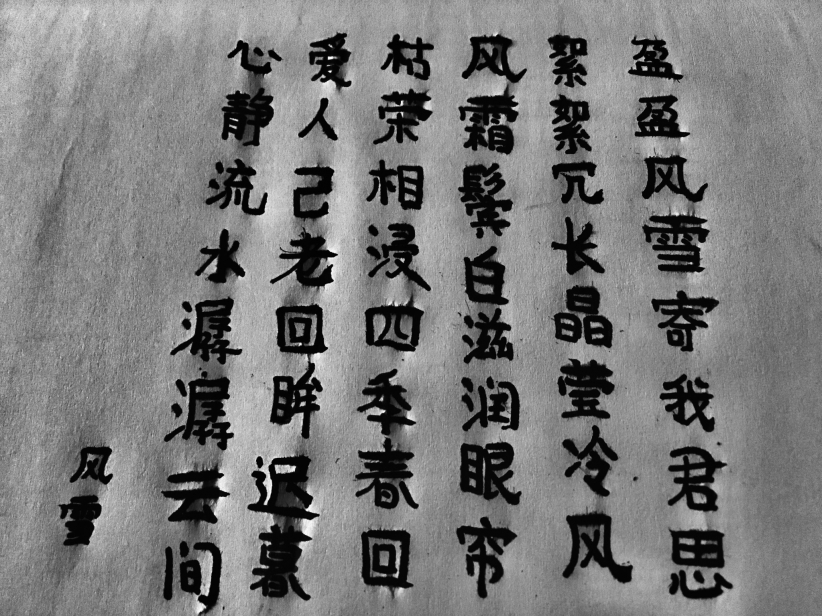 盈盈风雪寄我君思
絮絮冗长晶莹冷风
风霜鬓白滋润眼帘
枯荣相浸四季春回
爱人己老回眸迟暮
心静流水潺潺云间
风雪